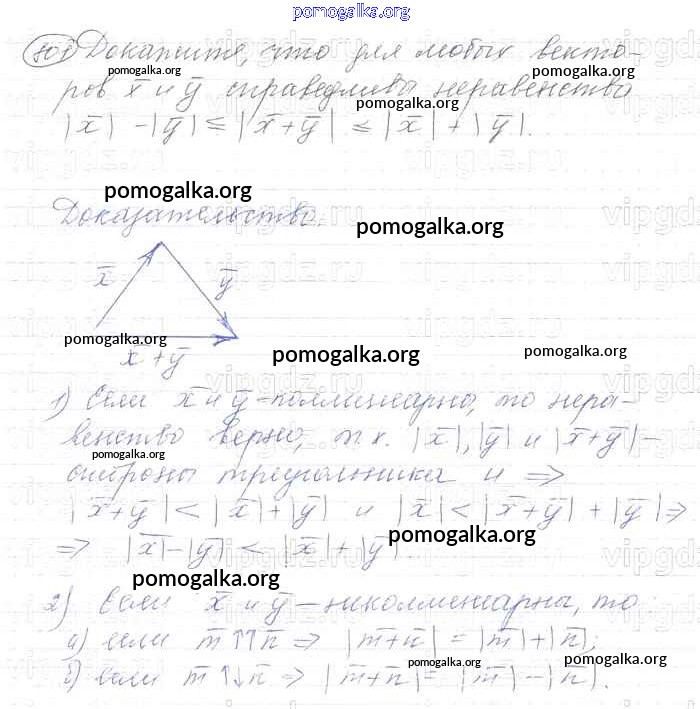 pomogalka.org
801 Докажите, что для любых векто-
ров x̅ и y̅ справедливы неравенства
|x̅| - |y̅| ≤ |x̅+y̅| ≤ |x̅| + |y̅|.
pomogalka.org
Доказательство.
pomogalka.org
x̅ y̅
pomogalka.org
x̅+y̅
pomogalka.org
pomogalka.org
1) Если x̅ и y̅ - коллинеарны, то нера-
венство верно, т.к. |x̅|, |y̅| и |x̅+y̅| -
стороны треугольника и ⇒
|x̅+y̅| < |x̅| + |y̅| и |x̅| < |x̅+y̅| + |y̅| ⇒
⇒ |x̅| - |y̅| < |x̅| + |y̅|
pomogalka.org
pomogalka.org
2) Если x̅ и y̅ - неколлинеарны, то:
а) если m̅ ↑↑ n̅ ⇒ |m̅+n̅| = |m̅| + |n̅|;
б) если m̅ ↑↓ n̅ ⇒ |m̅+n̅| = |m̅| - |n̅|.
pomogalka.org
pomogalka.org